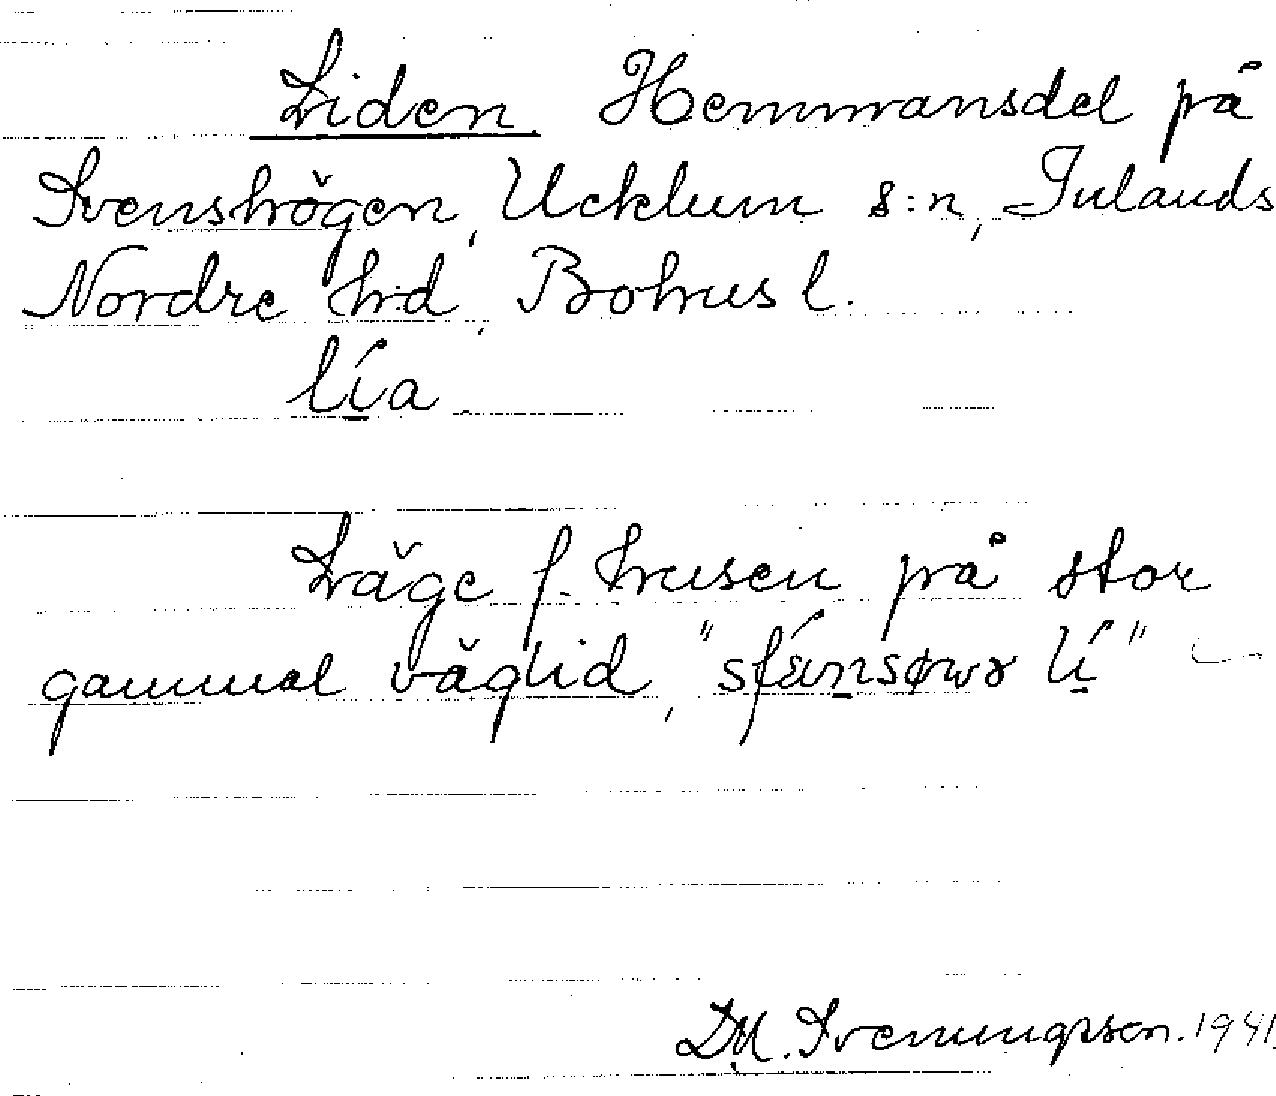 Liden Hemmansdel på
Svenshögen, Ucklum s:n, Inlands
Nordre hd, Bohusl.
lía
Läge f. husen på stor
gammal väglid, "
lí"
Svenungsson. 1941.